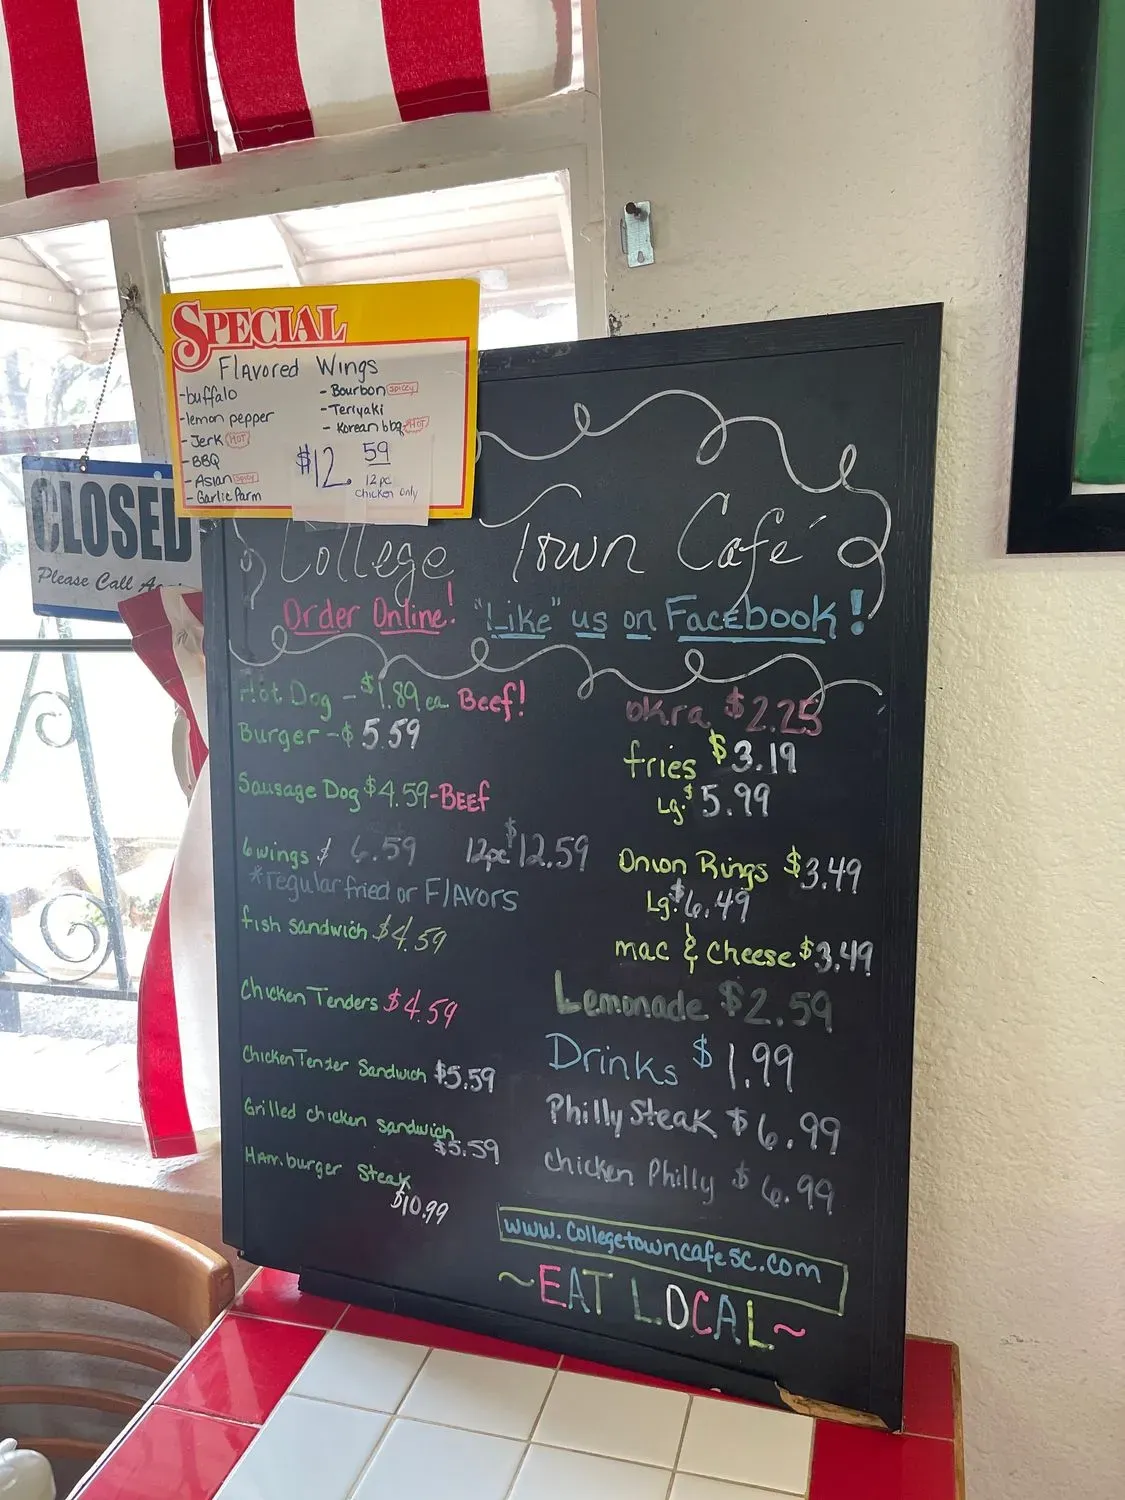 SPECIAL
Flavored Wings
- buffalo
- lemon pepper
- Jerk HOT
- BBQ
- Asian spicy
- Garlic Parm
- Bourbon spicy
- Teriyaki
- Korean bbq HOT
$12.59
12pc
chicken only
CLOSED
Please Call
College Town Café
Order Online! "Like" us on Facebook!
Hot Dog - $1.89 ea Beef!
Burger - $5.59
Sausage Dog $4.59 - BEEF
6 wings $6.59 12pc $12.59
*regular fried or FlAVORS
fish sandwich $4.59
Chicken Tenders $4.59
Chicken Tender Sandwich $5.59
Grilled chicken sandwich
$5.59
Hamburger Steak
$10.99
okra $2.25
fries $3.19
Lg. $5.99
Onion Rings $3.49
Lg. $6.49
mac & cheese $3.49
Lemonade $2.59
Drinks $1.99
Philly Steak $6.99
chicken Philly $6.99
www.collegetowncafesc.com
~EAT LOCAL~